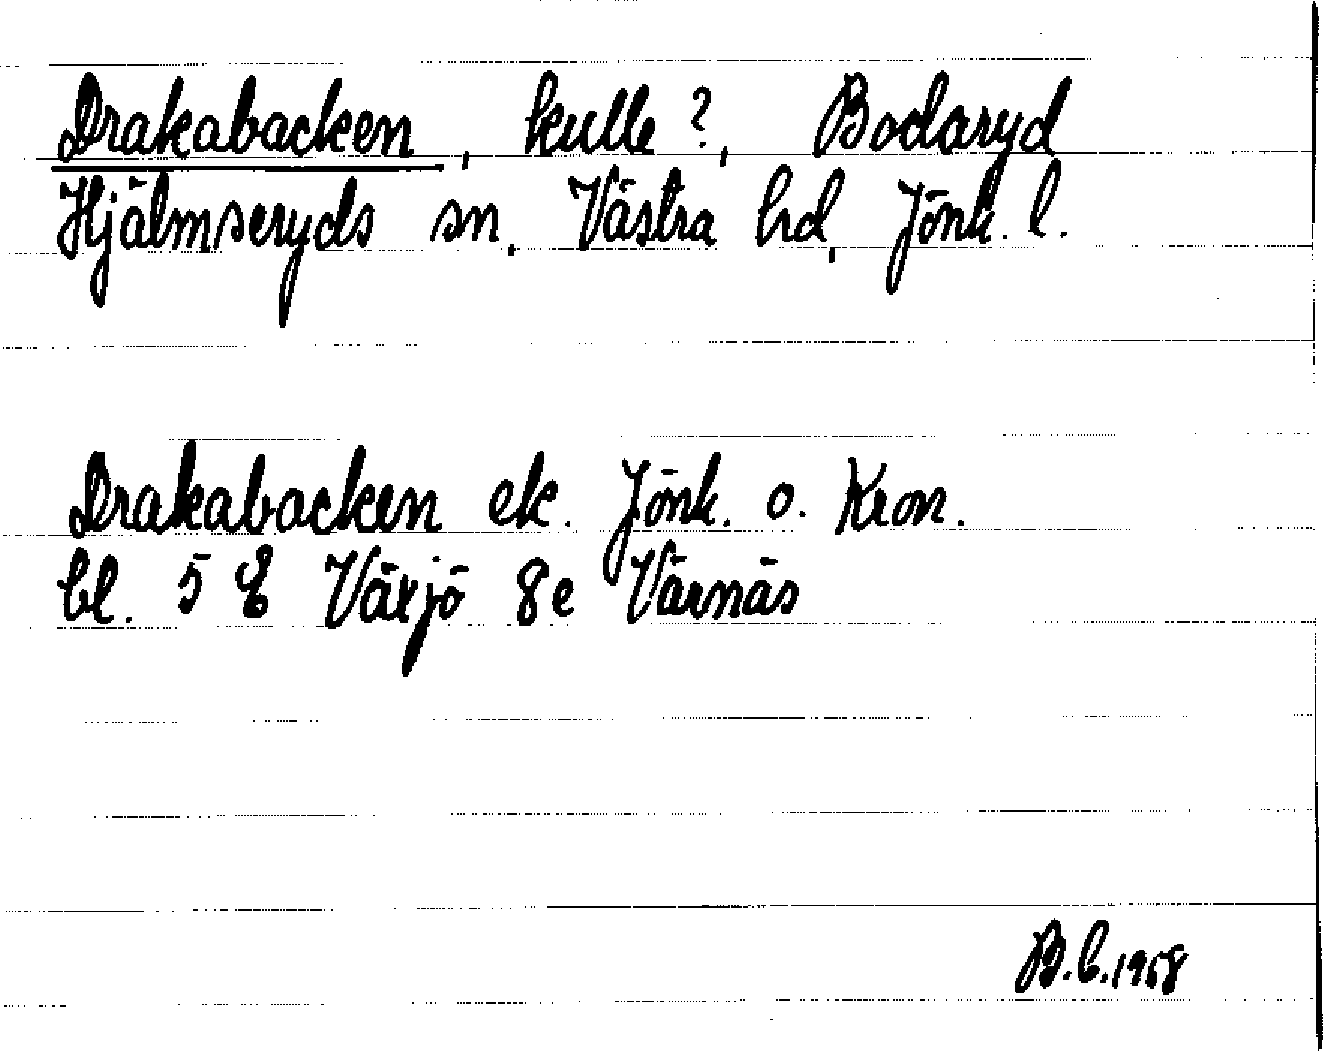 Drakabacken, kulle?, Bodaryd
Hjälmseryds sn, Västra hd, Jönk. l.
Drakabacken ek. Jönk. o. Kron.
bl. 5 E Växjö 8e Värnäs
B.C. 1958